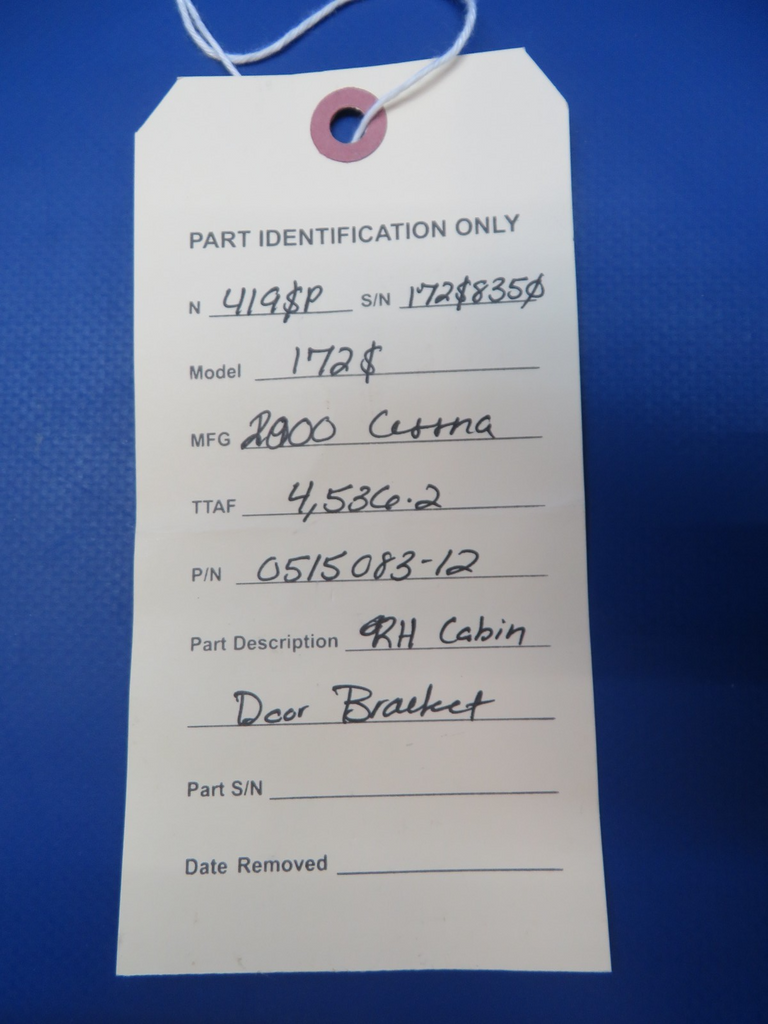 PART IDENTIFICATION ONLY
N 419$P S/N 172$835Ø
Model 172$
MFG 2000 Cessna
TTAF 4,536.2
P/N 0515083-12
Part Description RH Cabin
Door Bracket
Part S/N
Date Removed